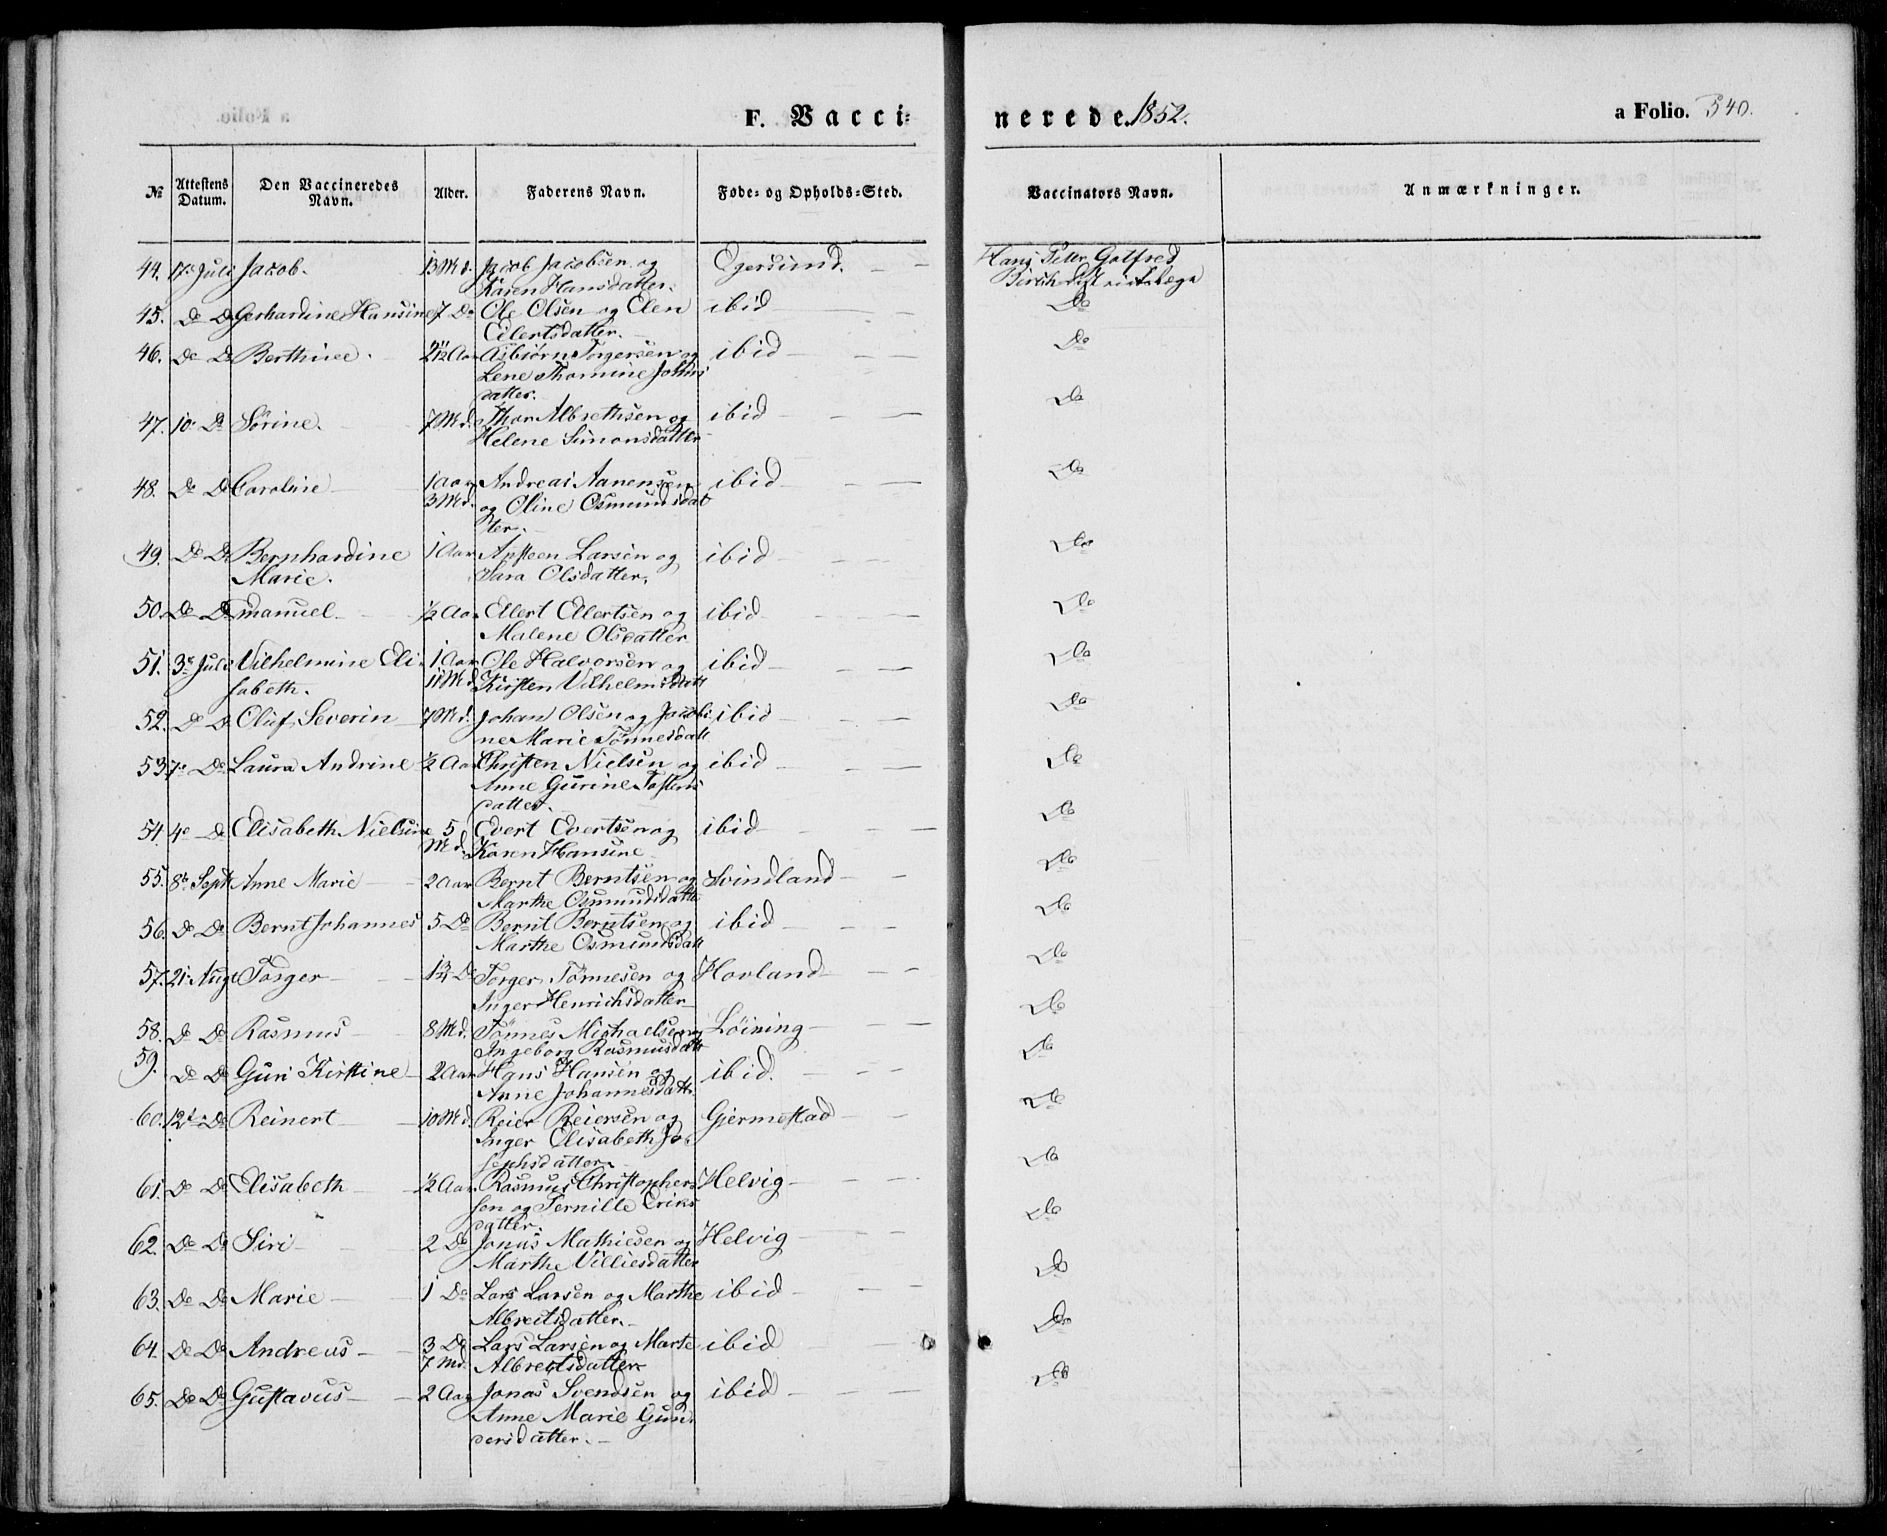 F. Vacci-
nerede. 1852.
a Folio. 540.
№ Attestens Datum. Den Vaccineredes Navn. Alder. Faderens Navn. Føde- og Opholds-Sted. Vaccinators Navn. Anmærkninger.
44. 17e Juli Jacob. 13 Md. Jacob Jacobsen og Egersund. Hans Peter Gotfred
Karen Hansdatter. Birch Distriktslæge
45. Do Do Gerhardine Hansine 7 Do Ole Olsen og Elen ibid Do
Eilertsdatter.
46. Do Do Berthine. 2½ Aar Asbjørn Torgersen og ibid Do
Lene Thomine Johns
datter.
47. 10e Do Sörine. 7 Md. Thor Albrethsen og ibid Do
Helene Simonsdatter
48. Do Do Caroline 1 Aar Andreas Aanensen ibid Do
3 Md. og Oline Osmundsdat
ter.
49. Do Do Bernhardine 1 Aar Apsteen Larsen og ibid Do
Marie. Sara Olsdatter.
50. Do Do Emanuel ½ Aar Ellert Ellertsen og ibid Do
Malene Olsdatter
51. 3e Juli Vilhelmine Eli- 1 Aar Ole Halvorsen og ibid Do
sabeth. 11 Md Kirsten Vilhelmsdatt
52. Do Do Oluf Severin 7 Md. Johan Olsen og Jacobi ibid Do
ne Marie Tönnesdatt
53. 7e Do Laura Andrine ½ Aar Christen Nielsen og ibid Do
Anne Gurine Tostens
datter.
54. 4e Do Elisabeth Nielsine 5 Evert Evertsen og ibid Do
Md. Karen Hansine
55. 8e Septr Anne Marie 2 Aar Bernt Berntsen og Svindland Do
Marthe Osmundsdatter
56. Do Do Bernt Johannes 5 Do Bernt Berntsen og ibid Do
Marthe Osmundsdatt
57. 21e Augt Torger 1¾ Do Torger Tönnesen og Hovland Do
Inger Henrichsdatter
58. Do Do Rasmus 8 Md. Tönnes Michaelsen og Löining Do
Ingeborg Rasmusdatt
59. Do Do Guri Kirstine 2 Aar Hans Hansen og ibid. Do
Anne Johannesdatt
60. 12te Do Reinert 10 Md. Reier Reiersen og Gjermestad Do
Inger Elisabeth Jo-
sephsdatter.
61. Do Do Elisabeth ½ Aar Rasmus Christopher- Helvig Do
sen og Pernille Eriks
datter.
62. Do Do Siri 2 Do Jonas Mathiesen og Helvig Do
Marthe Villiesdatter
63. Do Do Marie 1 Do Lars Larsen og Marthe ibid Do
Albreitsdatter.
64. Do Do Andreas 3 Do Lars Larsen og Marte ibid Do
7 Md. Albreitsdatter
65. Do Do Gustavus 2 Aar Jonas Svendsen og ibid Do
Anne Marie Gun-
dersdatter.